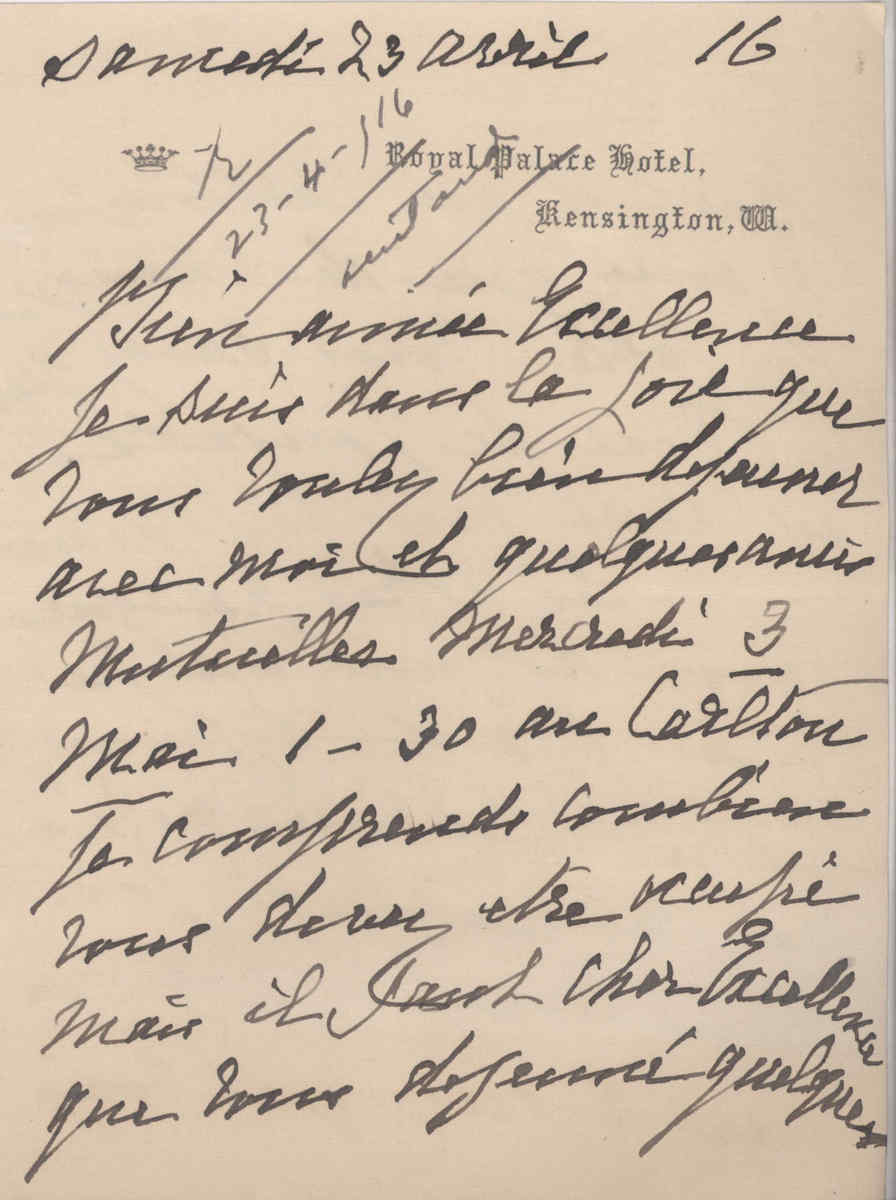 Samedi 23 avril 16
Royal Palace Hotel,
Kensington, W.
23-4-16
Bien aimée Excellence
Je suis dans la joie que
vous voulez bien dejeuner
avec moi et quelques amis
Mutuelles Mercredi 3
Mai 1-30 au Carlton
Je comprends combien
vous devez etre occupé
mais il faut cher Excellence
que vous dejeuné quelques